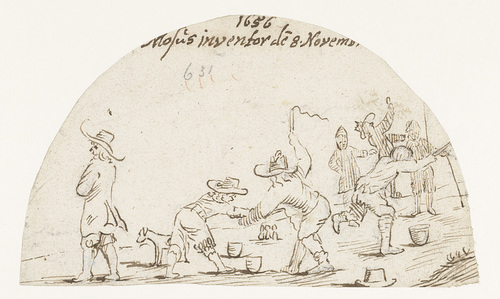 1656
Mosùs inventor dē 8. Novemb.
631